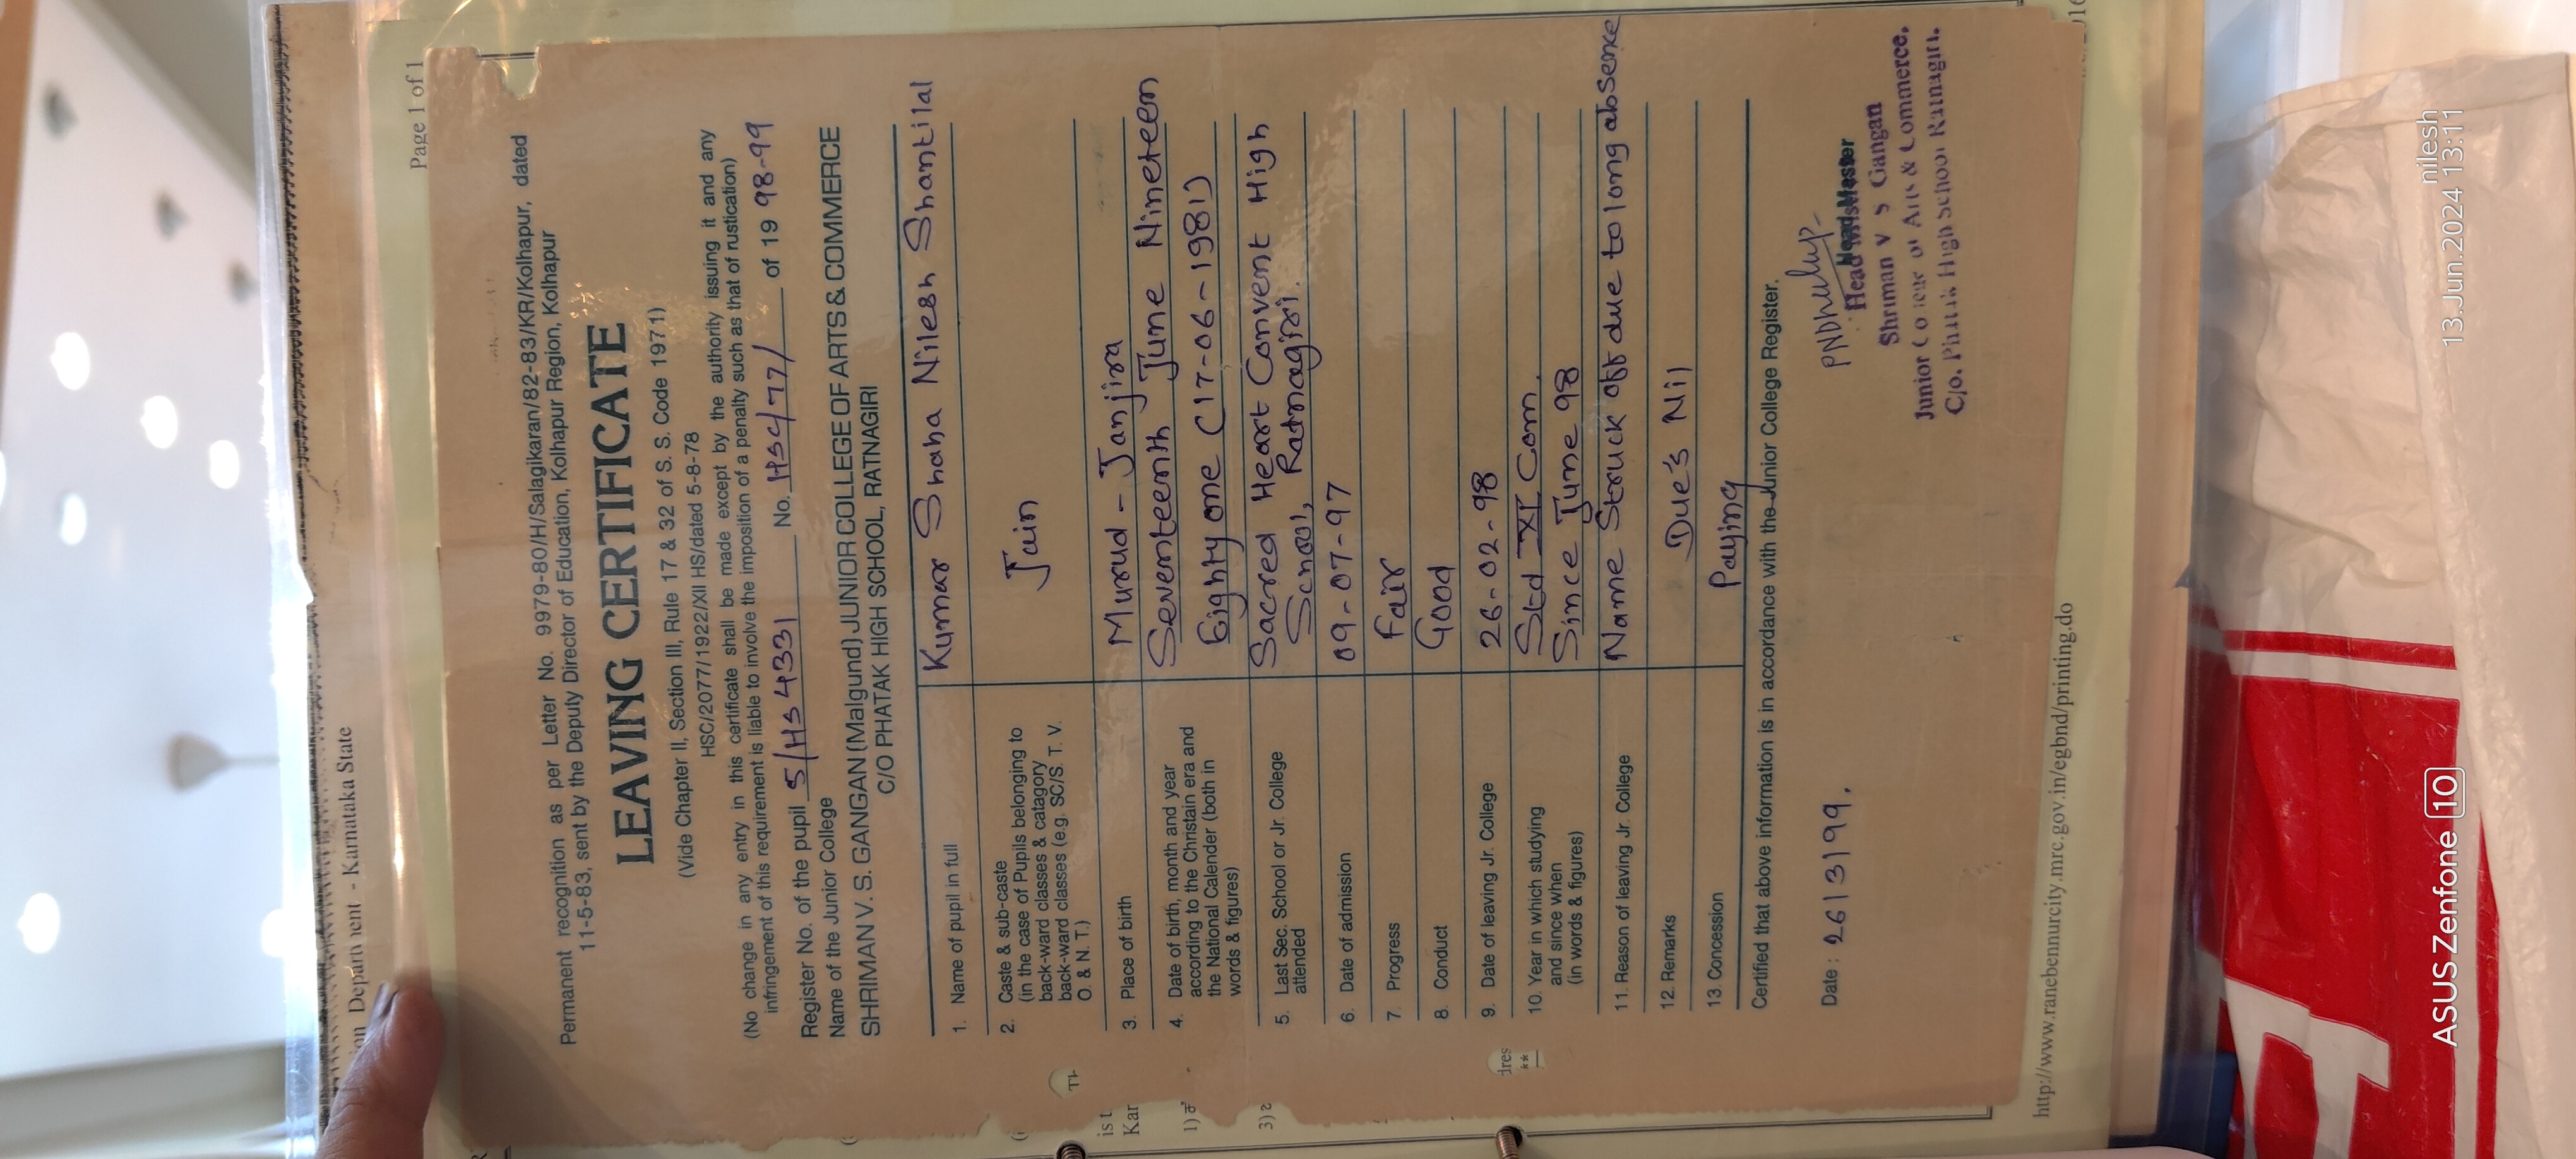 Page 1 of 1
Permanent recognition as per Letter No. 9979-80/H/Salagikaran/82-83/KR/Kolhapur, dated
11-5-83, sent by the Deputy Director of Education, Kolhapur Region, Kolhapur
LEAVING CERTIFICATE
(Vide Chapter II, Section III, Rule 17 & 32 of S. S. Code 1971)
HSC/2077/1922/XII HS/dated 5-8-78
(No change in any entry in this certificate shall be made except by the authority issuing it and any
infringement of this requirement is liable to involve the imposition of a penalty such as that of rustication)
Register No. of the pupil S/HS 4331 No. HSC/77/ of 19 98-99
Name of the Junior College
SHRIMAN V. S. GANGAN (Malgund) JUNIOR COLLEGE OF ARTS & COMMERCE
C/O PHATAK HIGH SCHOOL, RATNAGIRI
1. Name of pupil in full Kumar Shaha Nilesh Shantilal
2. Caste & sub-caste
(in the case of Pupils belonging to
back-ward classes & catagory
back-ward classes (e.g. SC/S. T. V.
O. & N. T.)
Jain
3. Place of birth Murud - Janjira
4. Date of birth, month and year
according to the Christain era and
the National Calender (both in
words & figures)
Seventeenth June Nineteen
Eighty one (17-06-1981)
5. Last Sec. School or Jr. College
attended
Sacred Heart Convent High
School, Ratnagiri.
6. Date of admission 09-07-97
7. Progress Fair
8. Conduct Good
9. Date of leaving Jr. College 26-02-98
10. Year in which studying
and since when
(in words & figures)
Std XI Com.
Since June 98
11. Reason of leaving Jr. College Name Struck off due to long absence
12. Remarks Due's Nil
13. Concession Paying
Certified that above information is in accordance with the Junior College Register.
Date : 26/3/99.
Head Master
Shriman V S Gangan
Junior College of Arts & Commerce.
C/o. Phatak High School Ratnagiri.
http://www.ranebennurcity.mrc.gov.in/egbnd/printing.do
- Karnataka State
ASUS Zenfone 10
nilesh
13.Jun.2024 13:11